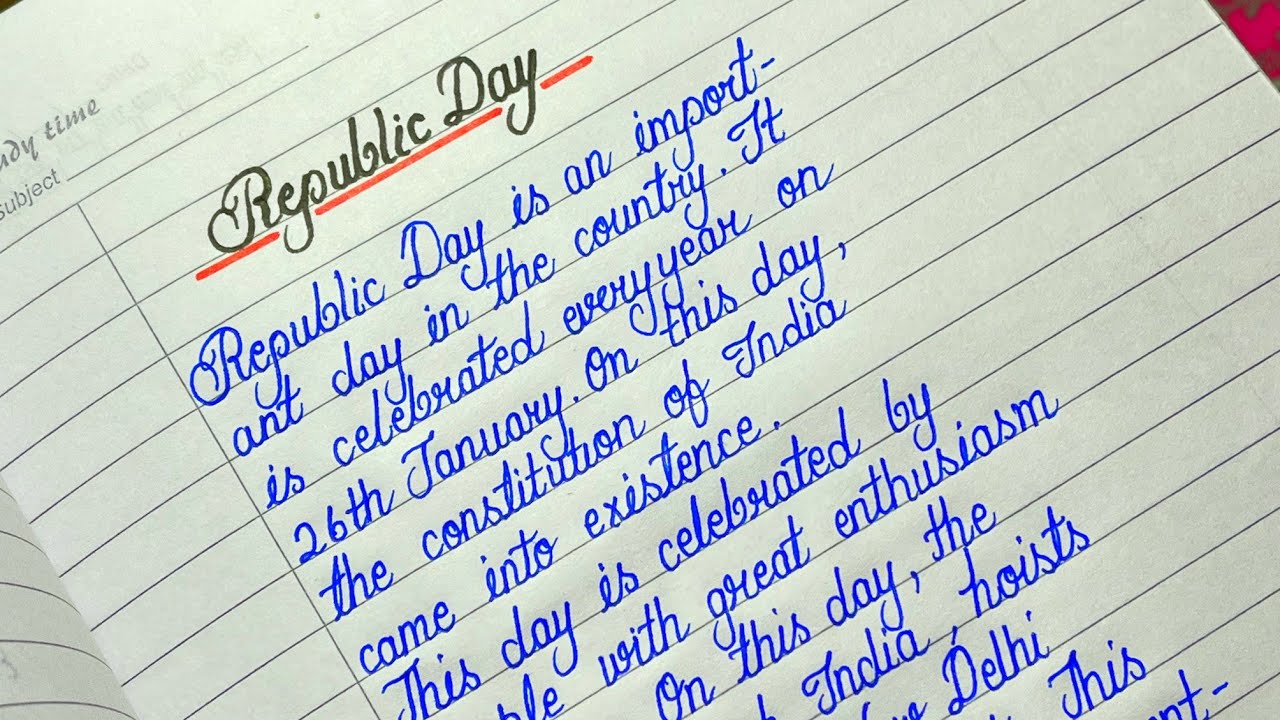 Study time
Subject
Republic Day
Republic Day is an import-
ant day in the country. It
is celebrated everyyear on
26th January. On this day,
the constitution of India
came into existence.
This day is celebrated by
with great enthusiasm
On this day, the
India, hoists
Delhi
This